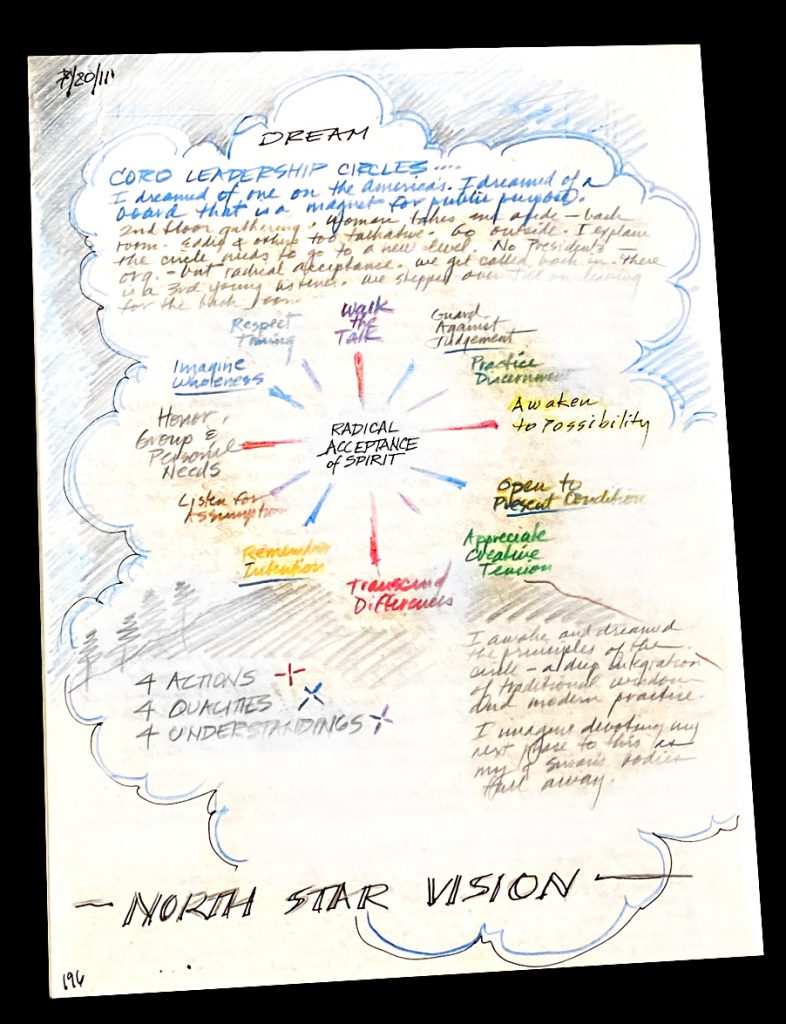 7/20/11
DREAM
CORO LEADERSHIP CIRCLES....
I dreamed of one on the Americas. I dreamed of a
board that is a magnet for public purpose.
2nd floor gathering. Woman takes me aside - back
room. Eddig & others too talkative. Go outside. I explain
the circle needs to go to a new level. No Presidents -
org. - but radical acceptance. We get called back in. There
is a 3rd young listener. We stepped over on leaving
for the back room
Respect
Timing
Walk
the
Talk
Guard
Against
Judgement
Imagine
Wholeness
Practice
Discernment
Awaken
to Possibility
Honor
Group &
Personal
Needs
RADICAL
ACCEPTANCE
of SPIRIT
Listen for
Assumption
Open to
Present Condition
Remember
Intention
Appreciate
Creative
Tension
Transcend
Differences
4 ACTIONS
4 QUALITIES
4 UNDERSTANDINGS
I awake and dreamed
the principles of the
circle - a deep integration
of traditional wisdom
and modern practice.
I imagine devoting my
next phase to this as
my & Susan's bodies
fall away.
- NORTH STAR VISION -
196